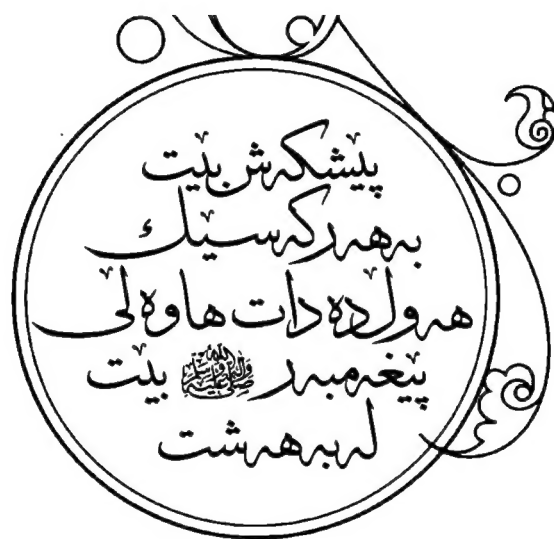 پێشکەش بێت
بە هەر کەسێك
هەوڵ دەدات هاوەڵی
پێغەمبەر ﷺ بێت
لە بەهەشت